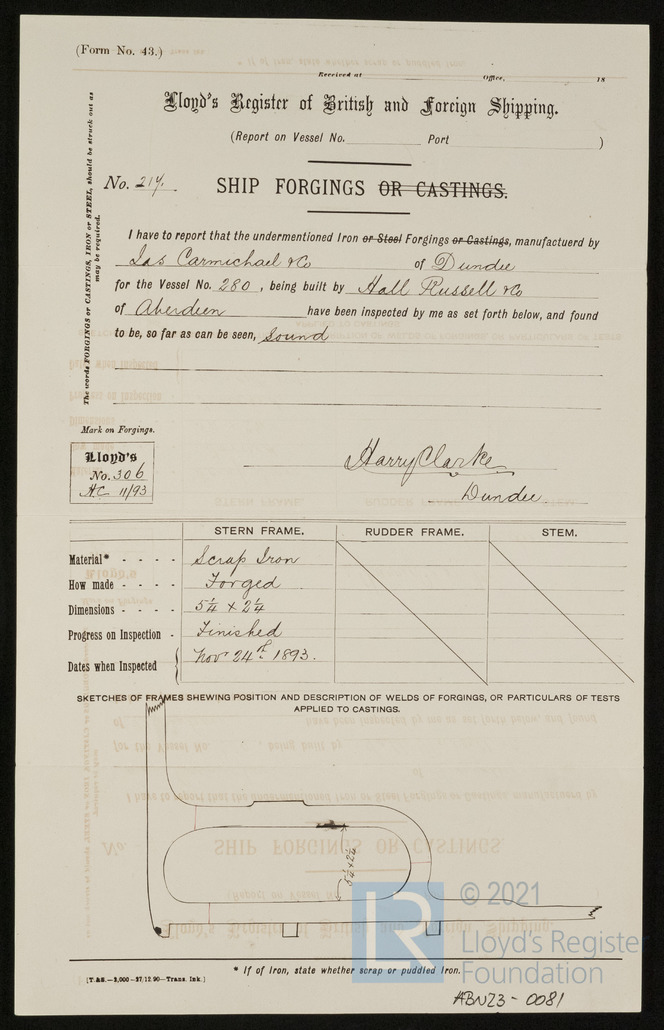 (Form No. 43.)
Received at Office, 18
Lloyd's Register of British and Foreign Shipping.
(Report on Vessel No. Port )
No. 217. SHIP FORGINGS OR CASTINGS.
The words FORGINGS or CASTINGS, IRON or STEEL, should be struck out as
may be required.
I have to report that the undermentioned Iron or Steel Forgings or Castings, manufactuerd by
Jas Carmichael & Co of Dundee
for the Vessel No. 280, being built by Hall Russell & Co
of Aberdeen have been inspected by me as set forth below, and found
to be, so far as can be seen, Sound
Mark on Forgings.
Lloyd's
No. 306
H.C. 11/93
Harry Clarke
Dundee.
STERN FRAME. RUDDER FRAME. STEM.
Material* - - - - Scrap Iron
How made - - - - Forged
Dimensions - - - - 5¼ x 2¼
Progress on Inspection - Finished
Dates when Inspected Nov 24th 1893.
SKETCHES OF FRAMES SHEWING POSITION AND DESCRIPTION OF WELDS OF FORGINGS, OR PARTICULARS OF TESTS
APPLIED TO CASTINGS.
5¼ x 2¼
© 2021
LR
Lloyd's Register
Foundation
* If of Iron, state whether scrap or puddled Iron.
[T.&S.—2,000—27/12.90—Trans. Ink.]
ABN23-0081